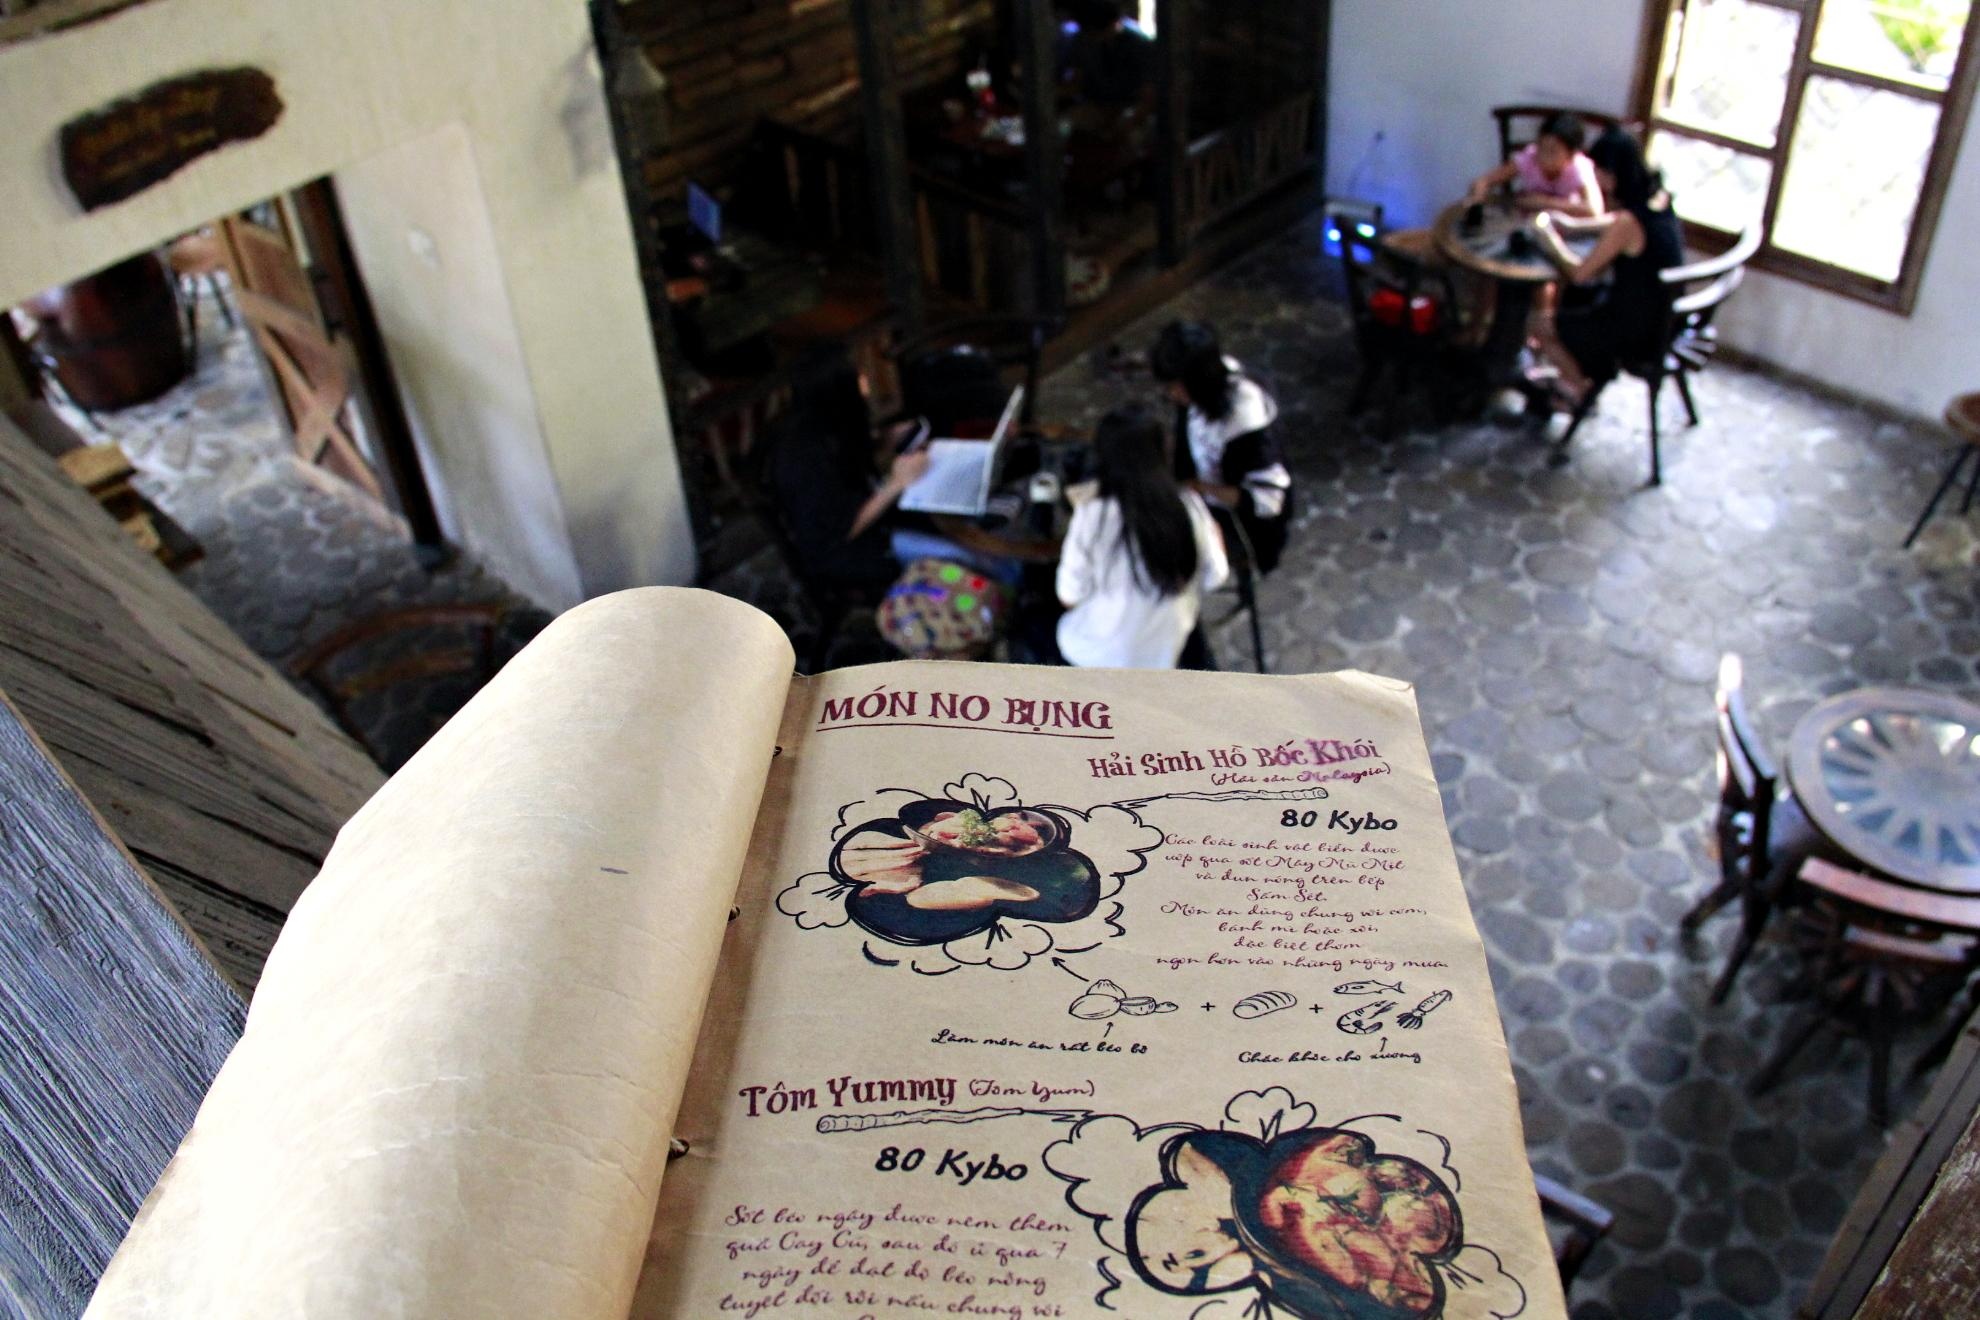 MÓN NO BỤNG
Hải Sinh Hồ Bốc Khói
(Hải sản Malaysia)
80 Kybo
Các loài sinh vật biển được
ướp qua sốt Mây Mù Mịt
và đun nóng trên bếp
Sấm Sét.
Món ăn dùng chung với cơm,
bánh mì hoặc xôi,
đặc biệt thơm
ngon hơn vào những ngày mưa.
+ +
Làm món ăn rất béo bở
Chắc khỏe cho xương
Tôm Yummy (Tom Yum)
80 Kybo
Sốt béo ngậy được nêm thêm
quả Cay Cú, sau đó ủ qua 7
ngày để đạt độ béo nồng
tuyệt đối rồi nấu chung với